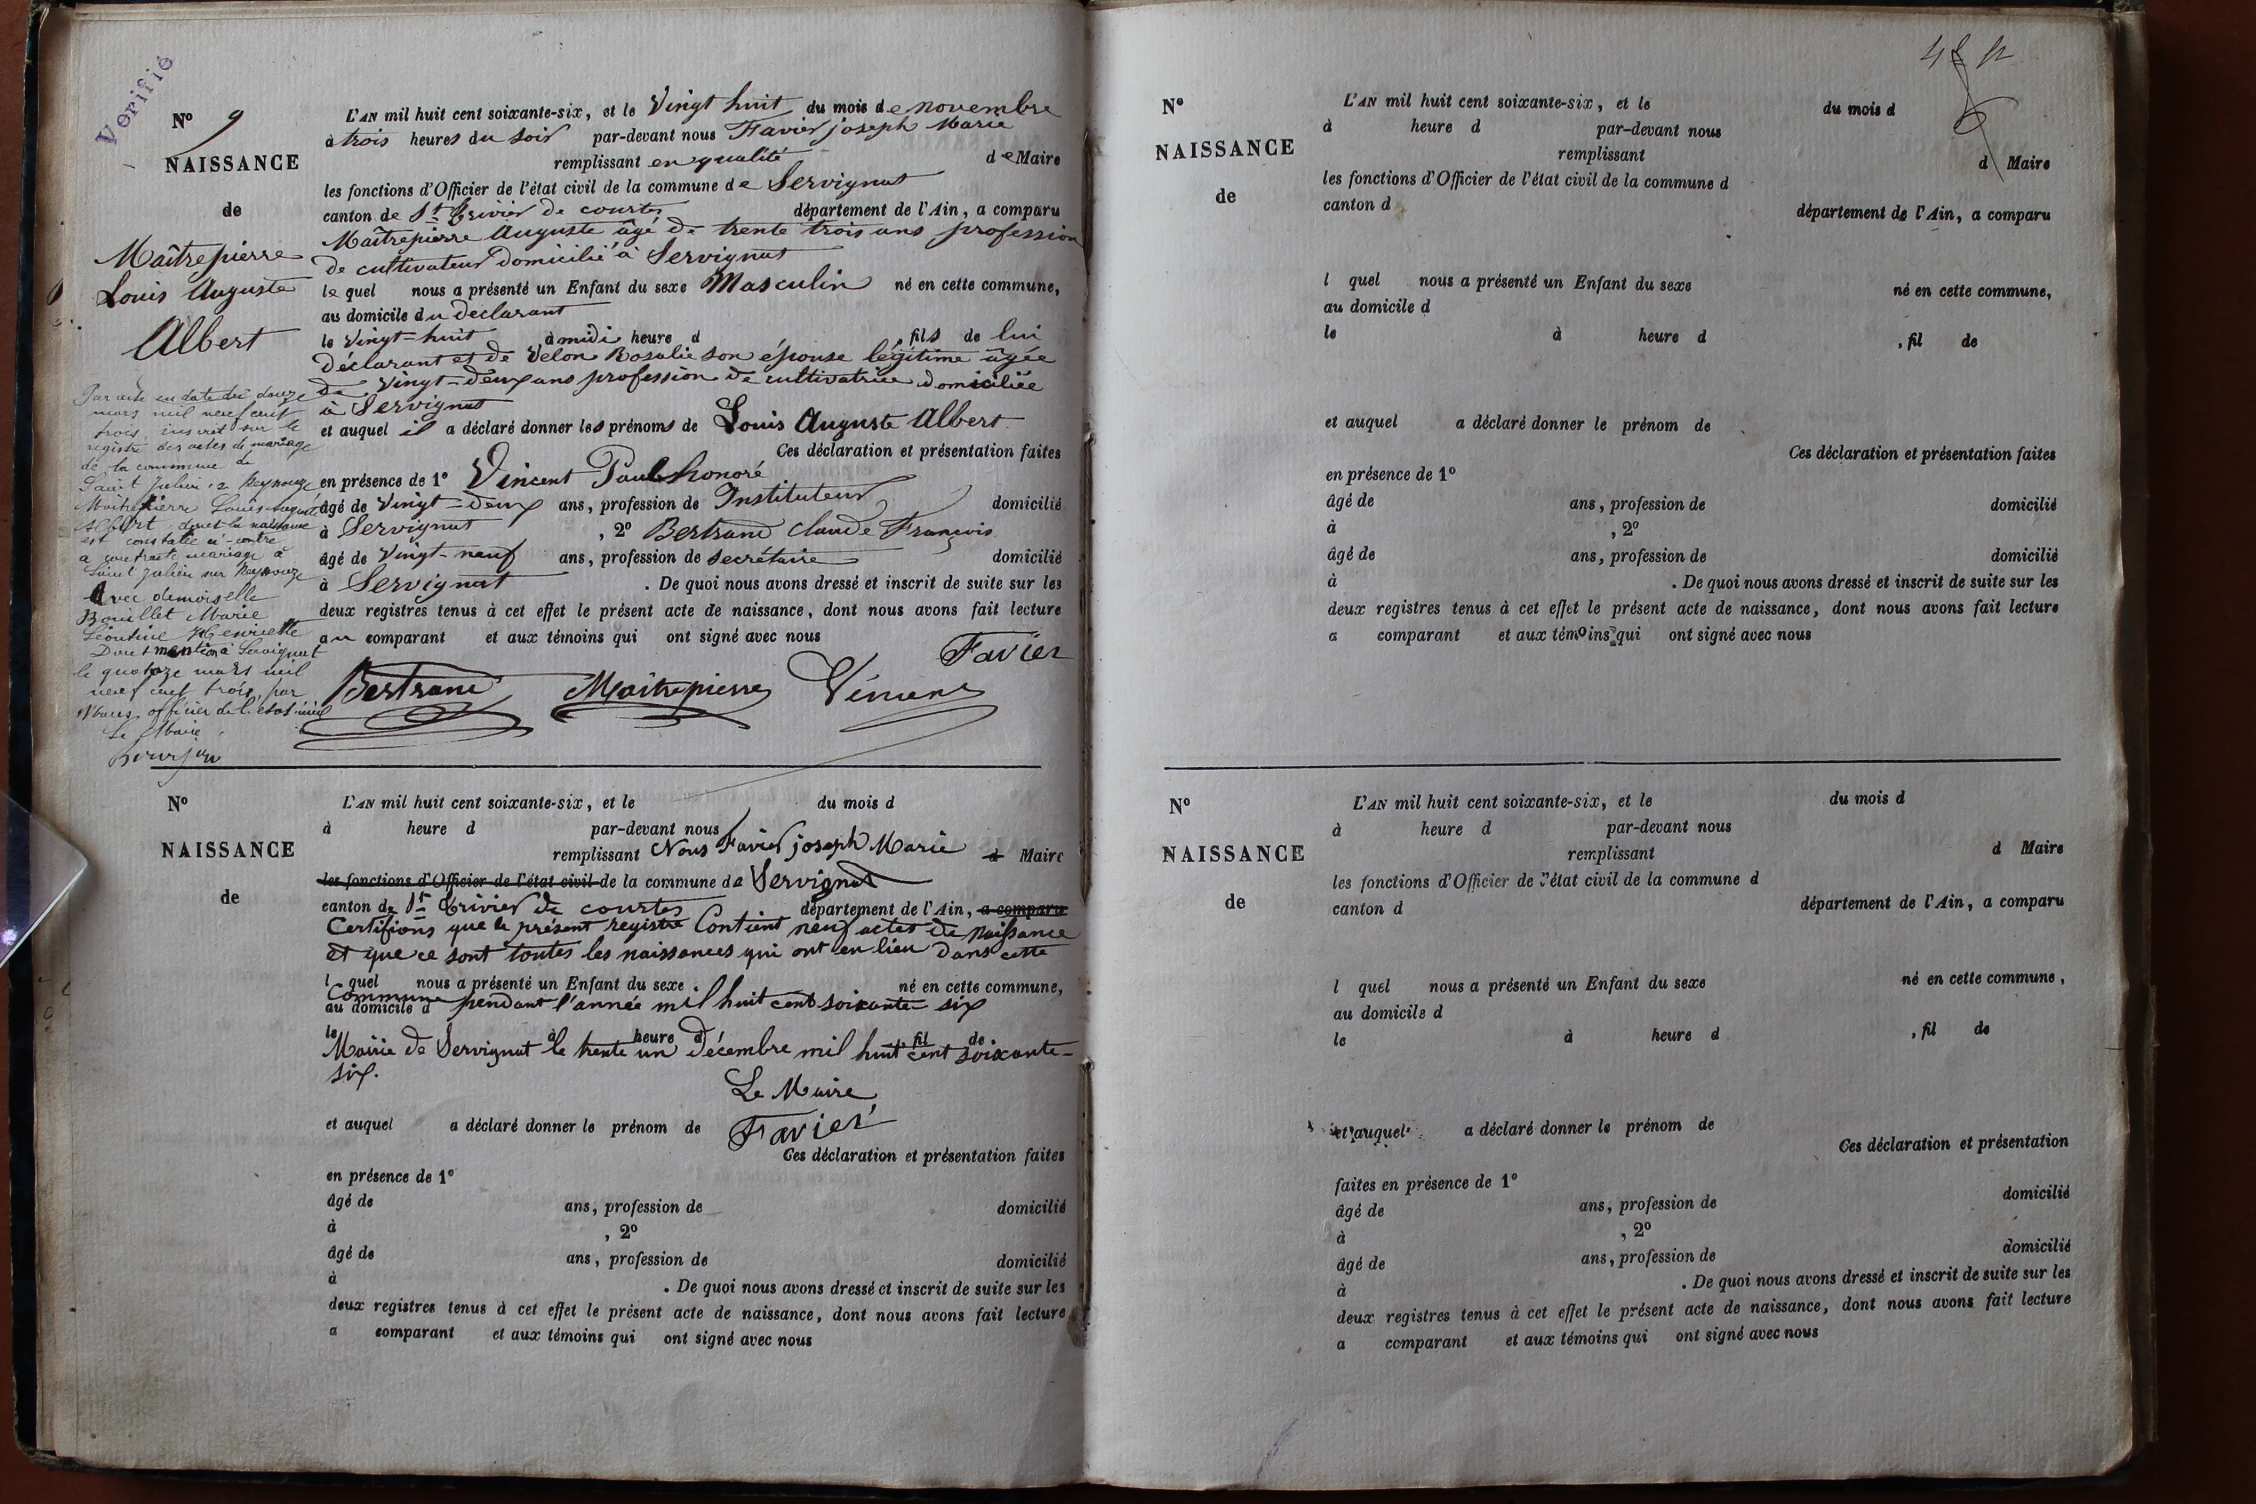 Verifié
N° 9
NAISSANCE
de
Maîtrepierre
Louis Auguste
Albert
Par acte en date du douze
mars mil neuf cent
trois inscrit sur le
registre des actes de mariage
de la commune de
Saint Julien s. Reyssouze
Maîtrepierre Louis Auguste
Albert dont la naissance
est constatée ci-contre
a contracté mariage à
Saint Julien sur Reyssouze
Avec demoiselle
Bouillet Marie
Léontine Henriette
Dont mention à Servignat
le quatorze mars mil
neuf cent trois, par
Nous officier de l'état civil
Le Maire
L'AN mil huit cent soixante-six, et le Vingt huit du mois de novembre
à trois heures du soir par-devant nous Favier joseph Marie
remplissant en qualité de Maire
les fonctions d'Officier de l'état civil de la commune de Servignat
canton de St Trivier de courtes département de l'Ain, a comparu
Maîtrepierre Auguste âgé de trente trois ans profession
de cultivateur domicilié à Servignat
le quel nous a présenté un Enfant du sexe Masculin né en cette commune,
au domicile du declarant
le Vingt-huit à midi heure d , fils de lui
déclarant et de Velon Rosalie son épouse légitime âgée
de vingt-deux ans profession de cultivatrice domiciliée
à Servignat
et auquel il a déclaré donner les prénoms de Louis Auguste Albert
Ces déclaration et présentation faites
en présence de 1° Vincent Paul honoré
âgé de Vingt-deux ans, profession de Instituteur domicilié
à Servignat , 2° Bertrand Claude François
âgé de Vingt-neuf ans, profession de secrétaire domicilié
à Servignat . De quoi nous avons dressé et inscrit de suite sur les
deux registres tenus à cet effet le présent acte de naissance, dont nous avons fait lecture
au comparant et aux témoins qui ont signé avec nous
Favier
Bertrand Maîtrepierre Vincent
N°
NAISSANCE
de
L'AN mil huit cent soixante-six, et le du mois d
à heure d par-devant nous
remplissant Nous Favier joseph Marie d Maire
les fonctions d'Officier de l'état civil de la commune de Servignat
canton de St Trivier de courtes département de l'Ain, a comparu
Certifions que le présent registre Contient neuf actes de naissance
et que ce sont toutes les naissances qui ont eu lieu dans cette
l quel nous a présenté un Enfant du sexe né en cette commune,
Commune pendant l'année mil huit cent soixante six
au domicile d
le à heure d , fil de
Mairie de Servignat le trente un Décembre mil huit cent soixante-
six.
Le Maire
Favier
et auquel a déclaré donner le prénom de
Ces déclaration et présentation faites
en présence de 1°
âgé de ans, profession de domicilié
à , 2°
âgé de ans, profession de domicilié
à . De quoi nous avons dressé et inscrit de suite sur les
deux registres tenus à cet effet le présent acte de naissance, dont nous avons fait lecture
a comparant et aux témoins qui ont signé avec nous
N°
NAISSANCE
de
L'AN mil huit cent soixante-six, et le du mois d
à heure d par-devant nous
remplissant d Maire
les fonctions d'Officier de l'état civil de la commune d
canton d département de l'Ain, a comparu
l quel nous a présenté un Enfant du sexe né en cette commune,
au domicile d
le à heure d , fil de
et auquel a déclaré donner le prénom de
Ces déclaration et présentation faites
en présence de 1°
âgé de ans, profession de domicilié
à , 2°
âgé de ans, profession de domicilié
à . De quoi nous avons dressé et inscrit de suite sur les
deux registres tenus à cet effet le présent acte de naissance, dont nous avons fait lecture
a comparant et aux témoins qui ont signé avec nous
N°
NAISSANCE
de
L'AN mil huit cent soixante-six, et le du mois d
à heure d par-devant nous
remplissant d Maire
les fonctions d'Officier de l'état civil de la commune d
canton d département de l'Ain, a comparu
l quel nous a présenté un Enfant du sexe né en cette commune,
au domicile d
le à heure d , fil de
et auquel a déclaré donner le prénom de
Ces déclaration et présentation
faites en présence de 1°
âgé de ans, profession de domicilié
à , 2°
âgé de ans, profession de domicilié
à . De quoi nous avons dressé et inscrit de suite sur les
deux registres tenus à cet effet le présent acte de naissance, dont nous avons fait lecture
a comparant et aux témoins qui ont signé avec nous